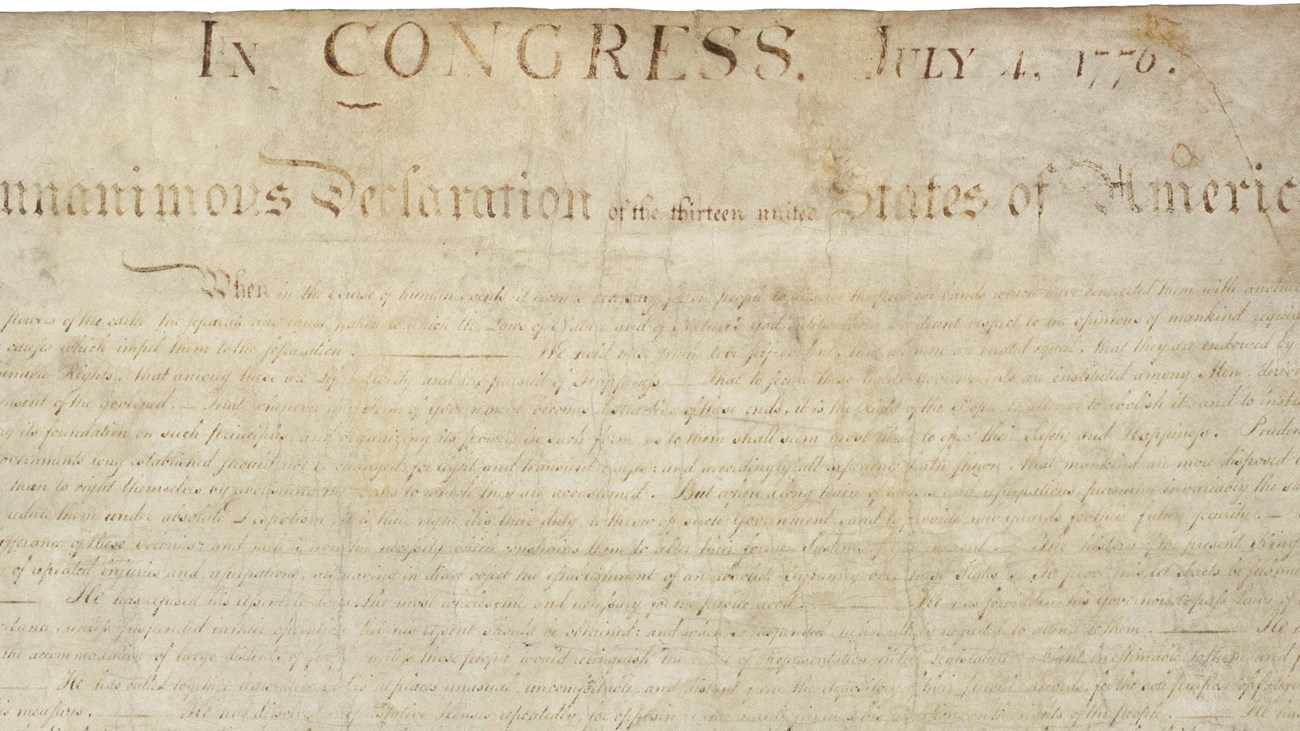 In CONGRESS. July 4, 1776.
unanimous Declaration of the thirteen united States of Americ
When in the Course of human events it becomes necessary for one people to dissolve the political bands which have connected them with another
powers of the earth, the separate and equal station to which the Laws of Nature and of Nature's God entitle them, a decent respect to the opinions of mankind requires
causes which impel them to the separation. We hold these truths to be self-evident, that all men are created equal, that they are endowed by
Rights, that among these are Life, Liberty and the pursuit of Happiness. — That to secure these rights, Governments are instituted among Men, deriving
of the governed, — That whenever any Form of Government becomes destructive of these ends, it is the Right of the People to alter or to abolish it, and to institute
its foundation on such principles, and organizing its powers in such form, as to them shall seem most likely to effect their Safety and Happiness. Pruden
overnments long established should not be changed for light and transient causes; and accordingly all experience hath shewn, that mankind are more disposed
than to right themselves by abolishing the forms to which they are accustomed. But when a long train of abuses and usurpations, pursuing invariably the sa
reduce them under absolute Despotism, it is their right, it is their duty, to throw off such Government, and to provide new Guards for their future security. —
of these Colonies; and such is now the necessity which constrains them to alter their former Systems of Government. The history of the present King
of repeated injuries and usurpations, all having in direct object the establishment of an absolute Tyranny over these States. To prove this, let Facts be submit
He has refused his Assent to Laws, the most wholesome and necessary for the public good. He has forbidden his Governors to pass Laws of
unless suspended in their operation till his Assent should be obtained; and when so suspended, he has utterly neglected to attend to them. He
the accommodation of large districts of people, unless those people would relinquish the right of Representation in the Legislature, a right inestimable to them and
He has called together legislative bodies at places unusual, uncomfortable, and distant from the depository of their public Records, for the sole purpose of
measures. He has dissolved Representative Houses repeatedly, for opposing with manly firmness his invasions on the rights of the people. He has